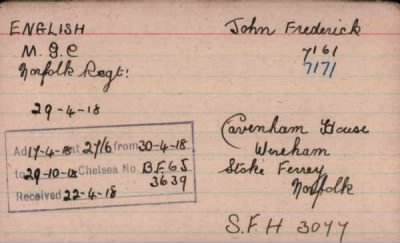 ENGLISH
John Frederick
M.G.C
7161
Norfolk Regt:
7171
29-4-18
Cavenham House
Wereham
Stoke Ferrey
Norfolk
Ad 17-4-18 at 27/6 from 30-4-18
to 29-10-18 Chelsea No. B.F65
3639
Received 22-4-18
S.F.H 3077